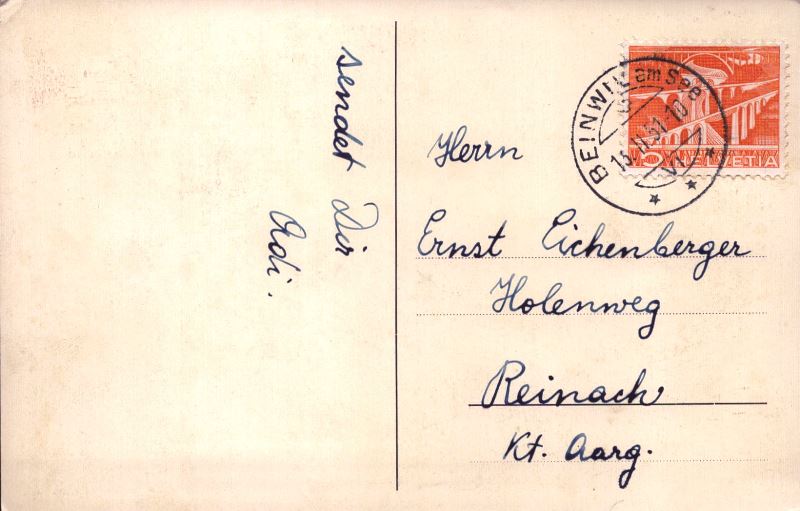 sendet Dir
Adi.
BEINWIL am See
5 HELVETIA
Herrn
Ernst Eichenberger
Holenweg
Reinach
Kt. Aarg.